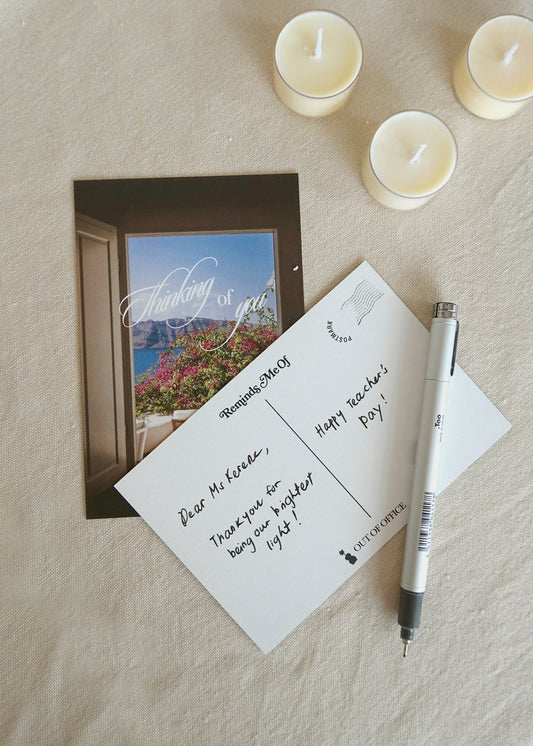 Thinking
of you
POSTMARK
Reminds Me Of
Dear Ms Kerenc,
Thank you for
being our brightest
light!
Happy Teacher's
Day!
OUT OF OFFICE
.Too